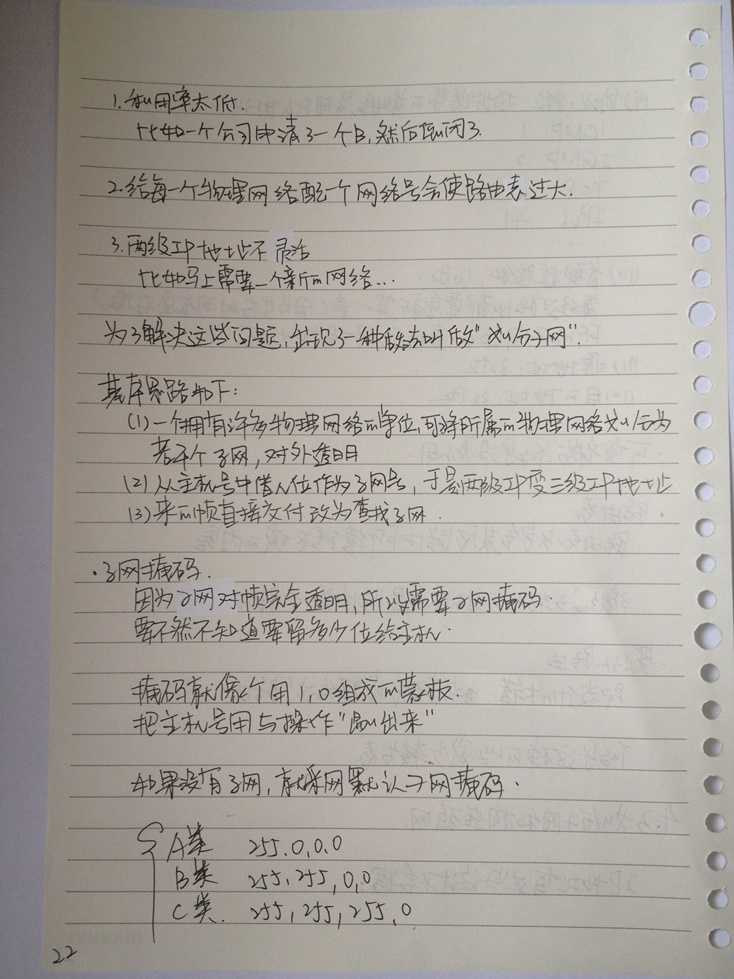 1.利用率太低.
比如一个公司申请了一个B,然后倒闭了.
2.给每一个物理网络配一个网络号会使路由表过大.
3.两级IP地址不灵活
比如马上需要一个新的网络...
为了解决这些问题,出现了一种做法叫做"划分子网".
基本思路如下:
(1)一个拥有许多物理网络的单位,可将所属的物理网络划分为
若干个子网,对外透明
(2)从主机号中借几位作为子网号,于是两级IP变三级IP地址
(3)来的帧直接交付改为查找子网.
·子网掩码.
因为子网对帧完全透明,所以需要子网掩码.
要不然不知道要留多少位给主机.
掩码就像个用1,0组成的蒙板.
把主机号用与操作"刷出来"
如果没有子网,就采网默认子网掩码.
A类 255.0.0.0
B类 255.255.0.0
C类. 255.255.255.0
22